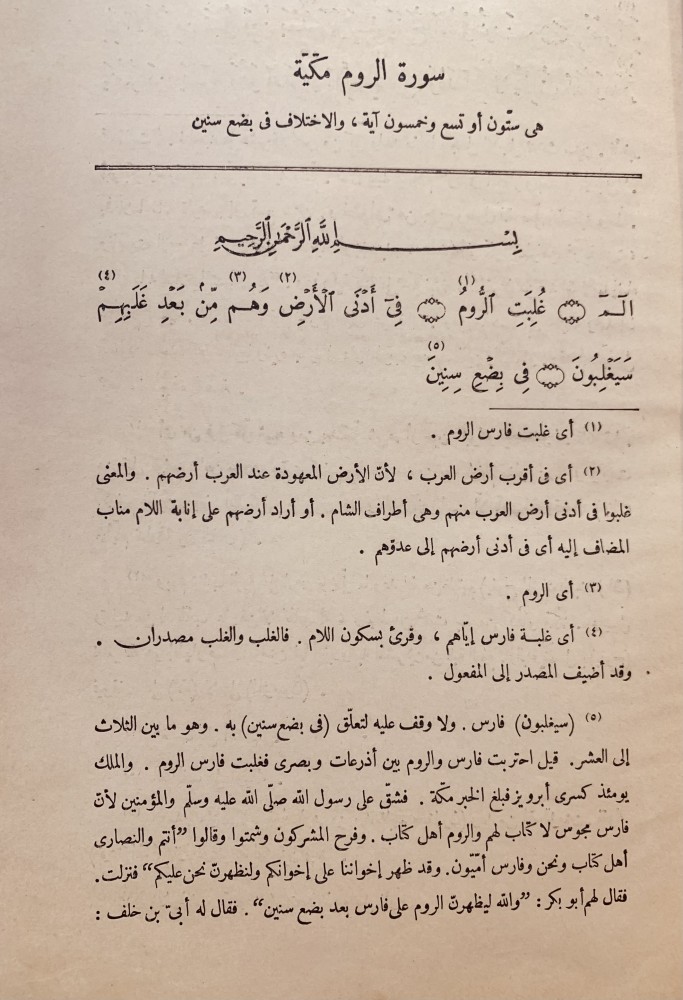 سورة الروم مكيّة
هى ستّون أو تسع وخمسون آية ، والاختلاف فى بضع سنين
بِسْمِ ٱللَّهِ ٱلرَّحْمَٰنِ ٱلرَّحِيمِ
الٓمٓ ۝ غُلِبَتِ ٱلرُّومُ (١) ۝ فِىٓ أَدْنَى ٱلْأَرْضِ (٢) وَهُم (٣) مِّنۢ بَعْدِ غَلَبِهِمْ (٤)
سَيَغْلِبُونَ ۝ فِى بِضْعِ سِنِينَ (٥)
(١) أى غلبت فارس الروم .
(٢) أى فى أقرب أرض العرب ، لأنّ الأرض المعهودة عند العرب أرضهم . والمعنى
غلبوا فى أدنى أرض العرب منهم وهى أطراف الشام . أو أراد أرضهم على إنابة اللام مناب
المضاف إليه أى فى أدنى أرضهم إلى عدوّهم .
(٣) أى الروم .
(٤) أى غلبة فارس إيّاهم ، وقرئ بسكون اللام . فالغلب والغلب مصدران .
وقد أضيف المصدر إلى المفعول .
(٥) (سيغلبون) فارس . ولا وقف عليه لتعلّق (فى بضع سنين) به . وهو ما بين الثلاث
إلى العشر. قيل احتربت فارس والروم بين أذرعات وبصرى فغلبت فارس الروم . والملك
يومئذ كسرى أبرويز فبلغ الخبر مكّة . فشقّ على رسول الله صلّى الله عليه وسلّم والمؤمنين لأنّ
فارس مجوس لا كتاب لهم والروم أهل كتاب . وفرح المشركون وشمتوا وقالوا ”أنتم والنصارى
أهل كتاب ونحن وفارس أمّيّون. وقد ظهر إخواننا على إخوانكم ولنظهرنّ نحن عليكم“ فنزلت.
فقال لهم أبو بكر : ”والله ليظهرنّ الروم على فارس بعد بضع سنين“ . فقال له أبىّ بن خلف :